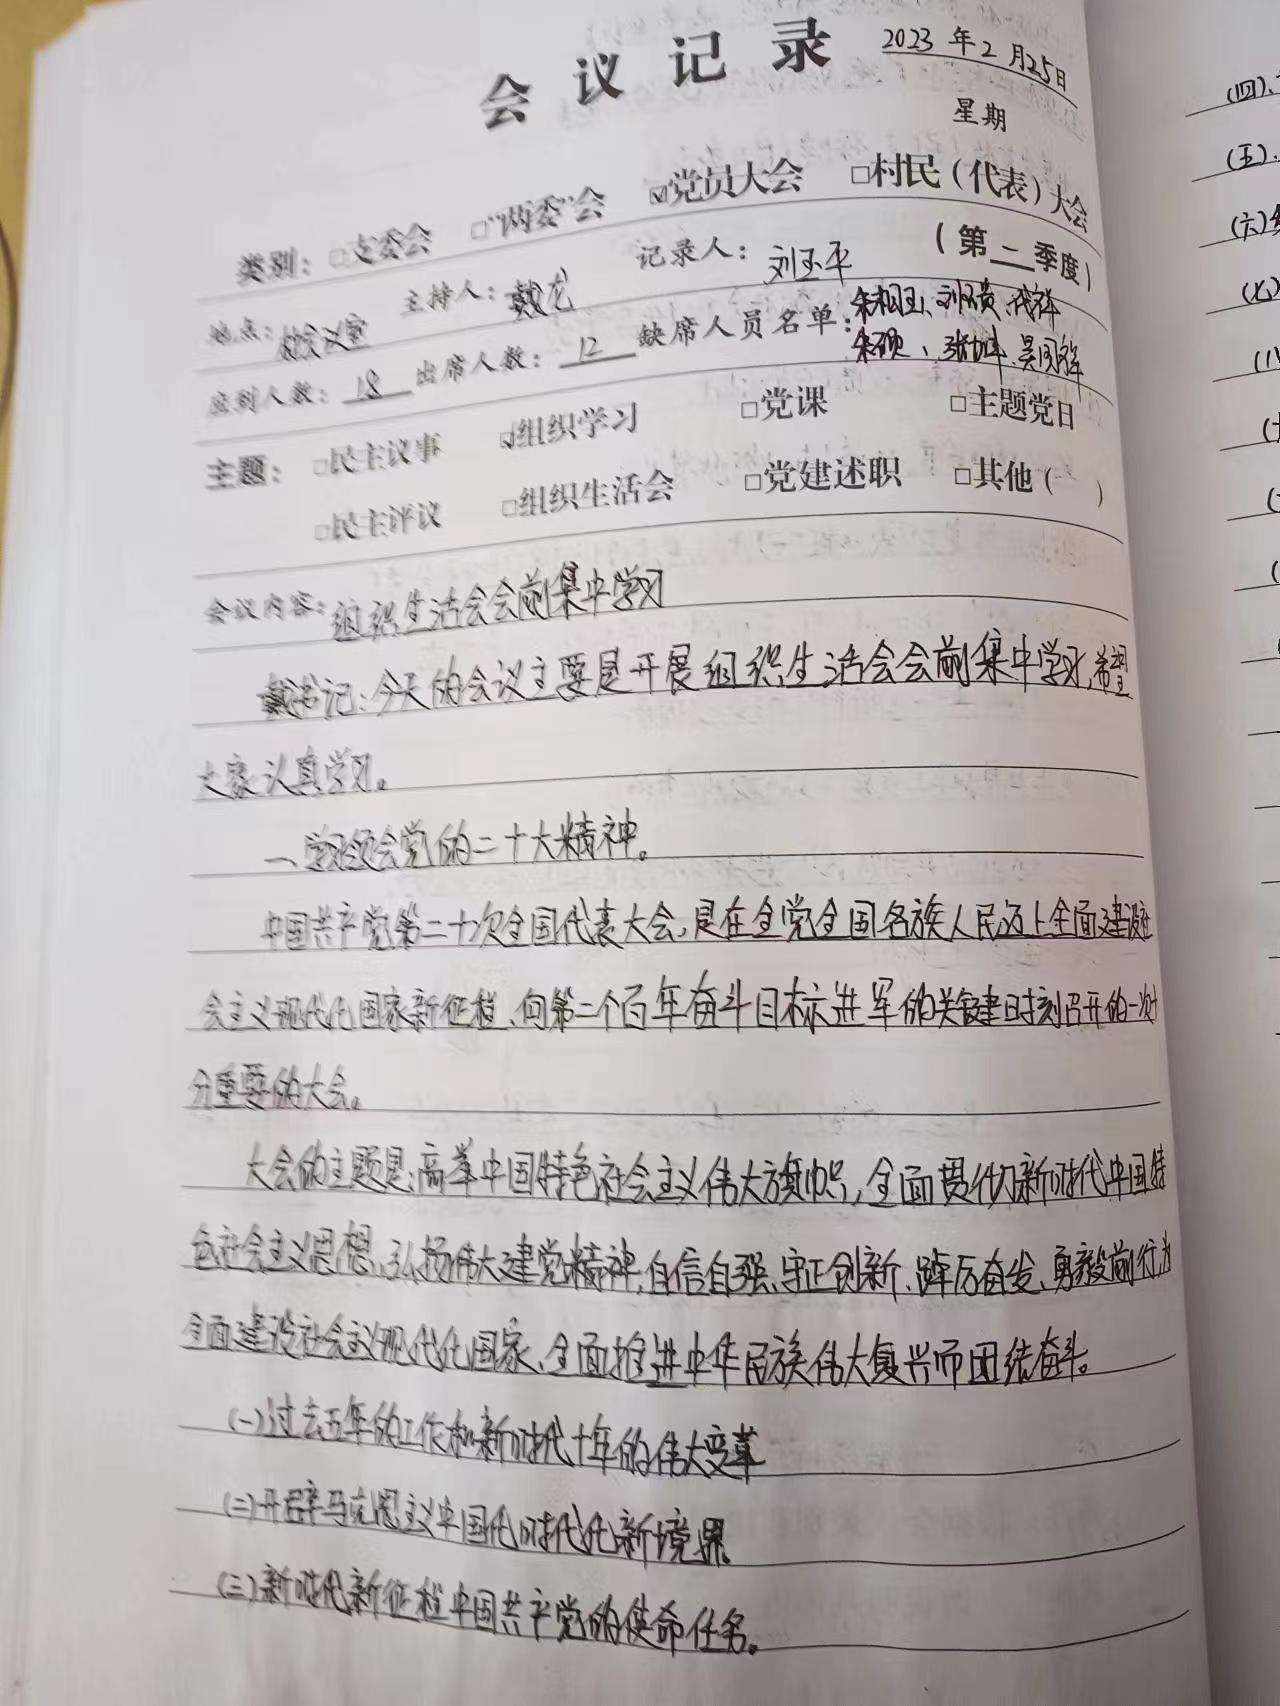 会议记录
2023年2月25日
星期
类别：□支委会 □"两委"会 ☑党员大会 □村民（代表）大会
（第__季度）
地点：会议室 主持人：戴龙 记录人：刘玉平
应到人数：18 出席人数：12 缺席人员名单：
主题：□民主议事 ☑组织学习 □党课 □主题党日
□民主评议 □组织生活会 □党建述职 □其他（ ）
会议内容：组织生活会会前集中学习
戴书记：今天的会议主要是开展组织生活会会前集中学习，希望
大家认真学习。
一、学习领会党的二十大精神。
中国共产党第二十次全国代表大会，是在全党全国各族人民迈上全面建设社
会主义现代化国家新征程、向第二个百年奋斗目标进军的关键时刻召开的一次十
分重要的大会。
大会的主题是：高举中国特色社会主义伟大旗帜，全面贯彻新时代中国特
色社会主义思想，弘扬伟大建党精神，自信自强、守正创新、踔厉奋发、勇毅前行，为
全面建设社会主义现代化国家、全面推进中华民族伟大复兴而团结奋斗。
(一)过去五年的工作和新时代十年的伟大变革
(二)开辟马克思主义中国化时代化新境界
(三)新时代新征程中国共产党的使命任务。
(四)、
(五)、
(六)
(七)